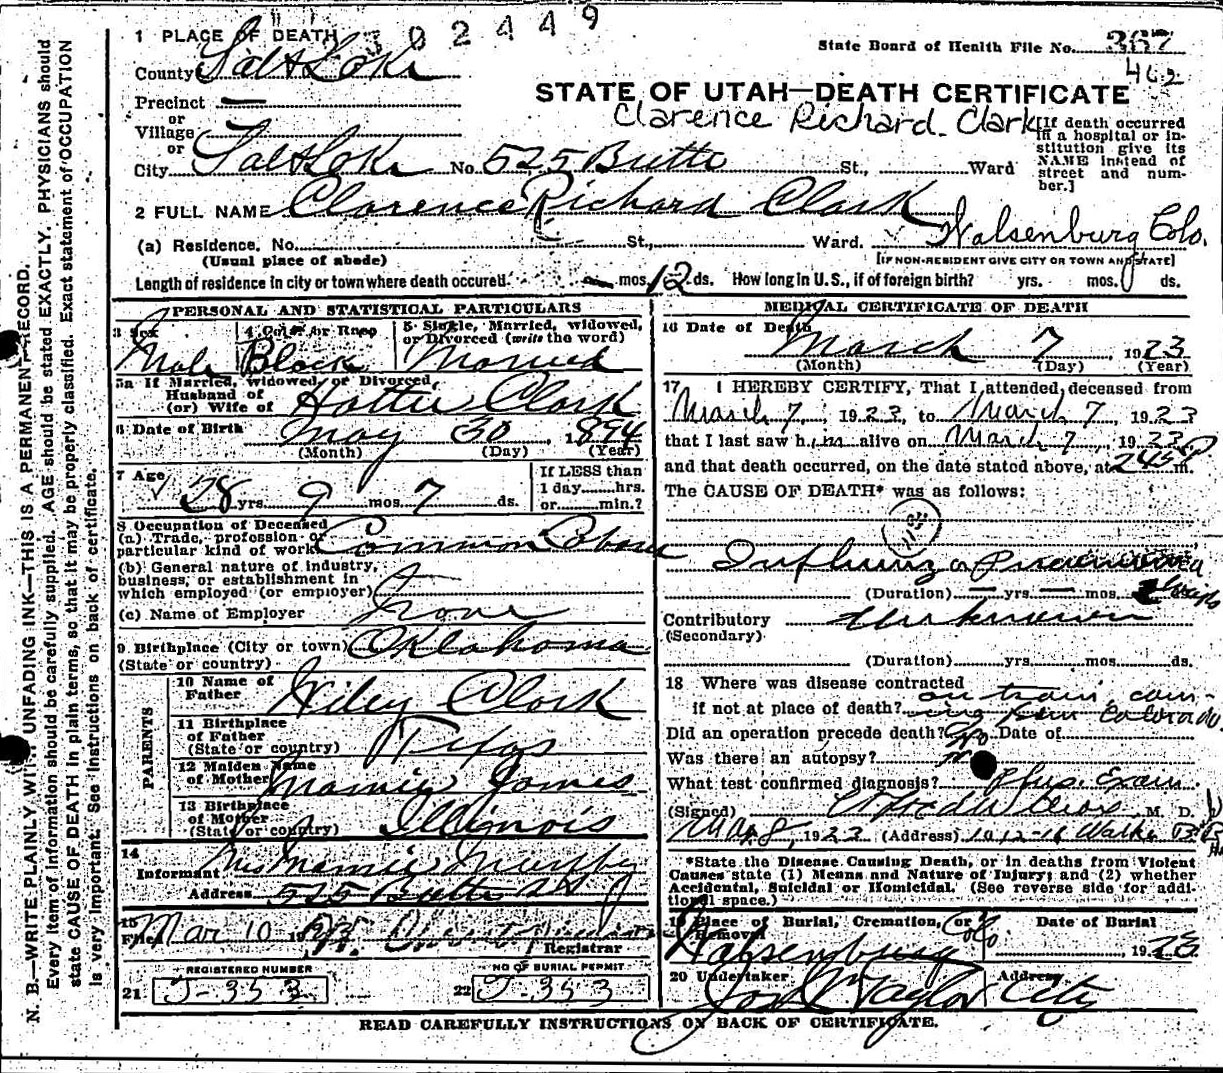 302449
1 PLACE OF DEATH
State Board of Health File No. 367
County Salt Lake
462
STATE OF UTAH—DEATH CERTIFICATE
Precinct —
Clarence Richard Clark
or
Village
or
City Salt Lake No. 525 Butte St., Ward
[If death occurred
in a hospital or in-
stitution give its
NAME instead of
street and num-
ber.]
2 FULL NAME Clarence Richard Clark
(a) Residence. No. St., Ward. Walsenburg Colo.
(Usual place of abode) [IF NON-RESIDENT GIVE CITY OR TOWN AND STATE]
Length of residence in city or town where death occured. — mos. 12 ds. How long in U.S., if of foreign birth? yrs. mos. ds.
PERSONAL AND STATISTICAL PARTICULARS
3 Sex 4 Color or Race 5 Single, Married, widowed,
or Divorced (write the word)
Male Black Married
5a If Married, widowed, or Divorced,
Husband of
(or) Wife of Hattie Clark
6 Date of Birth May 30, 1894
(Month) (Day) (Year)
7 Age 28 yrs. 9 mos. 7 ds.
If LESS than
1 day hrs.
or min.?
8 Occupation of Deceased
(a) Trade, profession or
particular kind of work Common Labour
(b) General nature of industry,
business, or establishment in
which employed (or employer)
(c) Name of Employer None
9. Birthplace (City or town) Oklahoma
(State or country)
PARENTS
10 Name of
Father Wiley Clark
11 Birthplace
of Father
(State or country) Texas
12 Maiden Name
of Mother Mamie James
13 Birthplace
of Mother
(State or country) Illinois
14
Informant Mrs Mamie Murphy
Address 525 Butte
15
Filed Mar 10 1923
Registrar
REGISTERED NUMBER NO OF BURIAL PERMIT
21 J-353 22 J-353
MEDICAL CERTIFICATE OF DEATH
16 Date of Death
March 7, 1923
(Month) (Day) (Year)
17 I HEREBY CERTIFY, That I attended deceased from
March 7, 1923, to March 7, 1923
that I last saw him alive on March 7, 1923
and that death occurred, on the date stated above, at 245 P m.
The CAUSE OF DEATH* was as follows:
Influenza Pneumonia
(Duration) — yrs. — mos. days
Contributory Unknown
(Secondary)
(Duration) yrs. mos. ds.
18 Where was disease contracted on train com-
if not at place of death? ing from Colorado
Did an operation precede death? No Date of
Was there an autopsy? No
What test confirmed diagnosis? Phys. Exam.
(Signed) M. D.
Mar. 8, 1923 (Address) 1012-16 Walker
*State the Disease Causing Death, or in deaths from Violent
Causes state (1) Means and Nature of Injury; and (2) whether
Accidental, Suicidal or Homicidal. (See reverse side for addi-
tional space.)
19 Place of Burial, Cremation, or Removal Date of Burial
Walsenburg Colo. 1923
20 Undertaker Address
Jos. Wm Taylor City
READ CAREFULLY INSTRUCTIONS ON BACK OF CERTIFICATE.
N. B.—WRITE PLAINLY WITH UNFADING INK—THIS IS A PERMANENT RECORD.
Every item of information should be carefully supplied. AGE should be stated EXACTLY. PHYSICIANS should
state CAUSE OF DEATH in plain terms, so that it may be properly classified. Exact statement of OCCUPATION
is very important. See instructions on back of certificate.